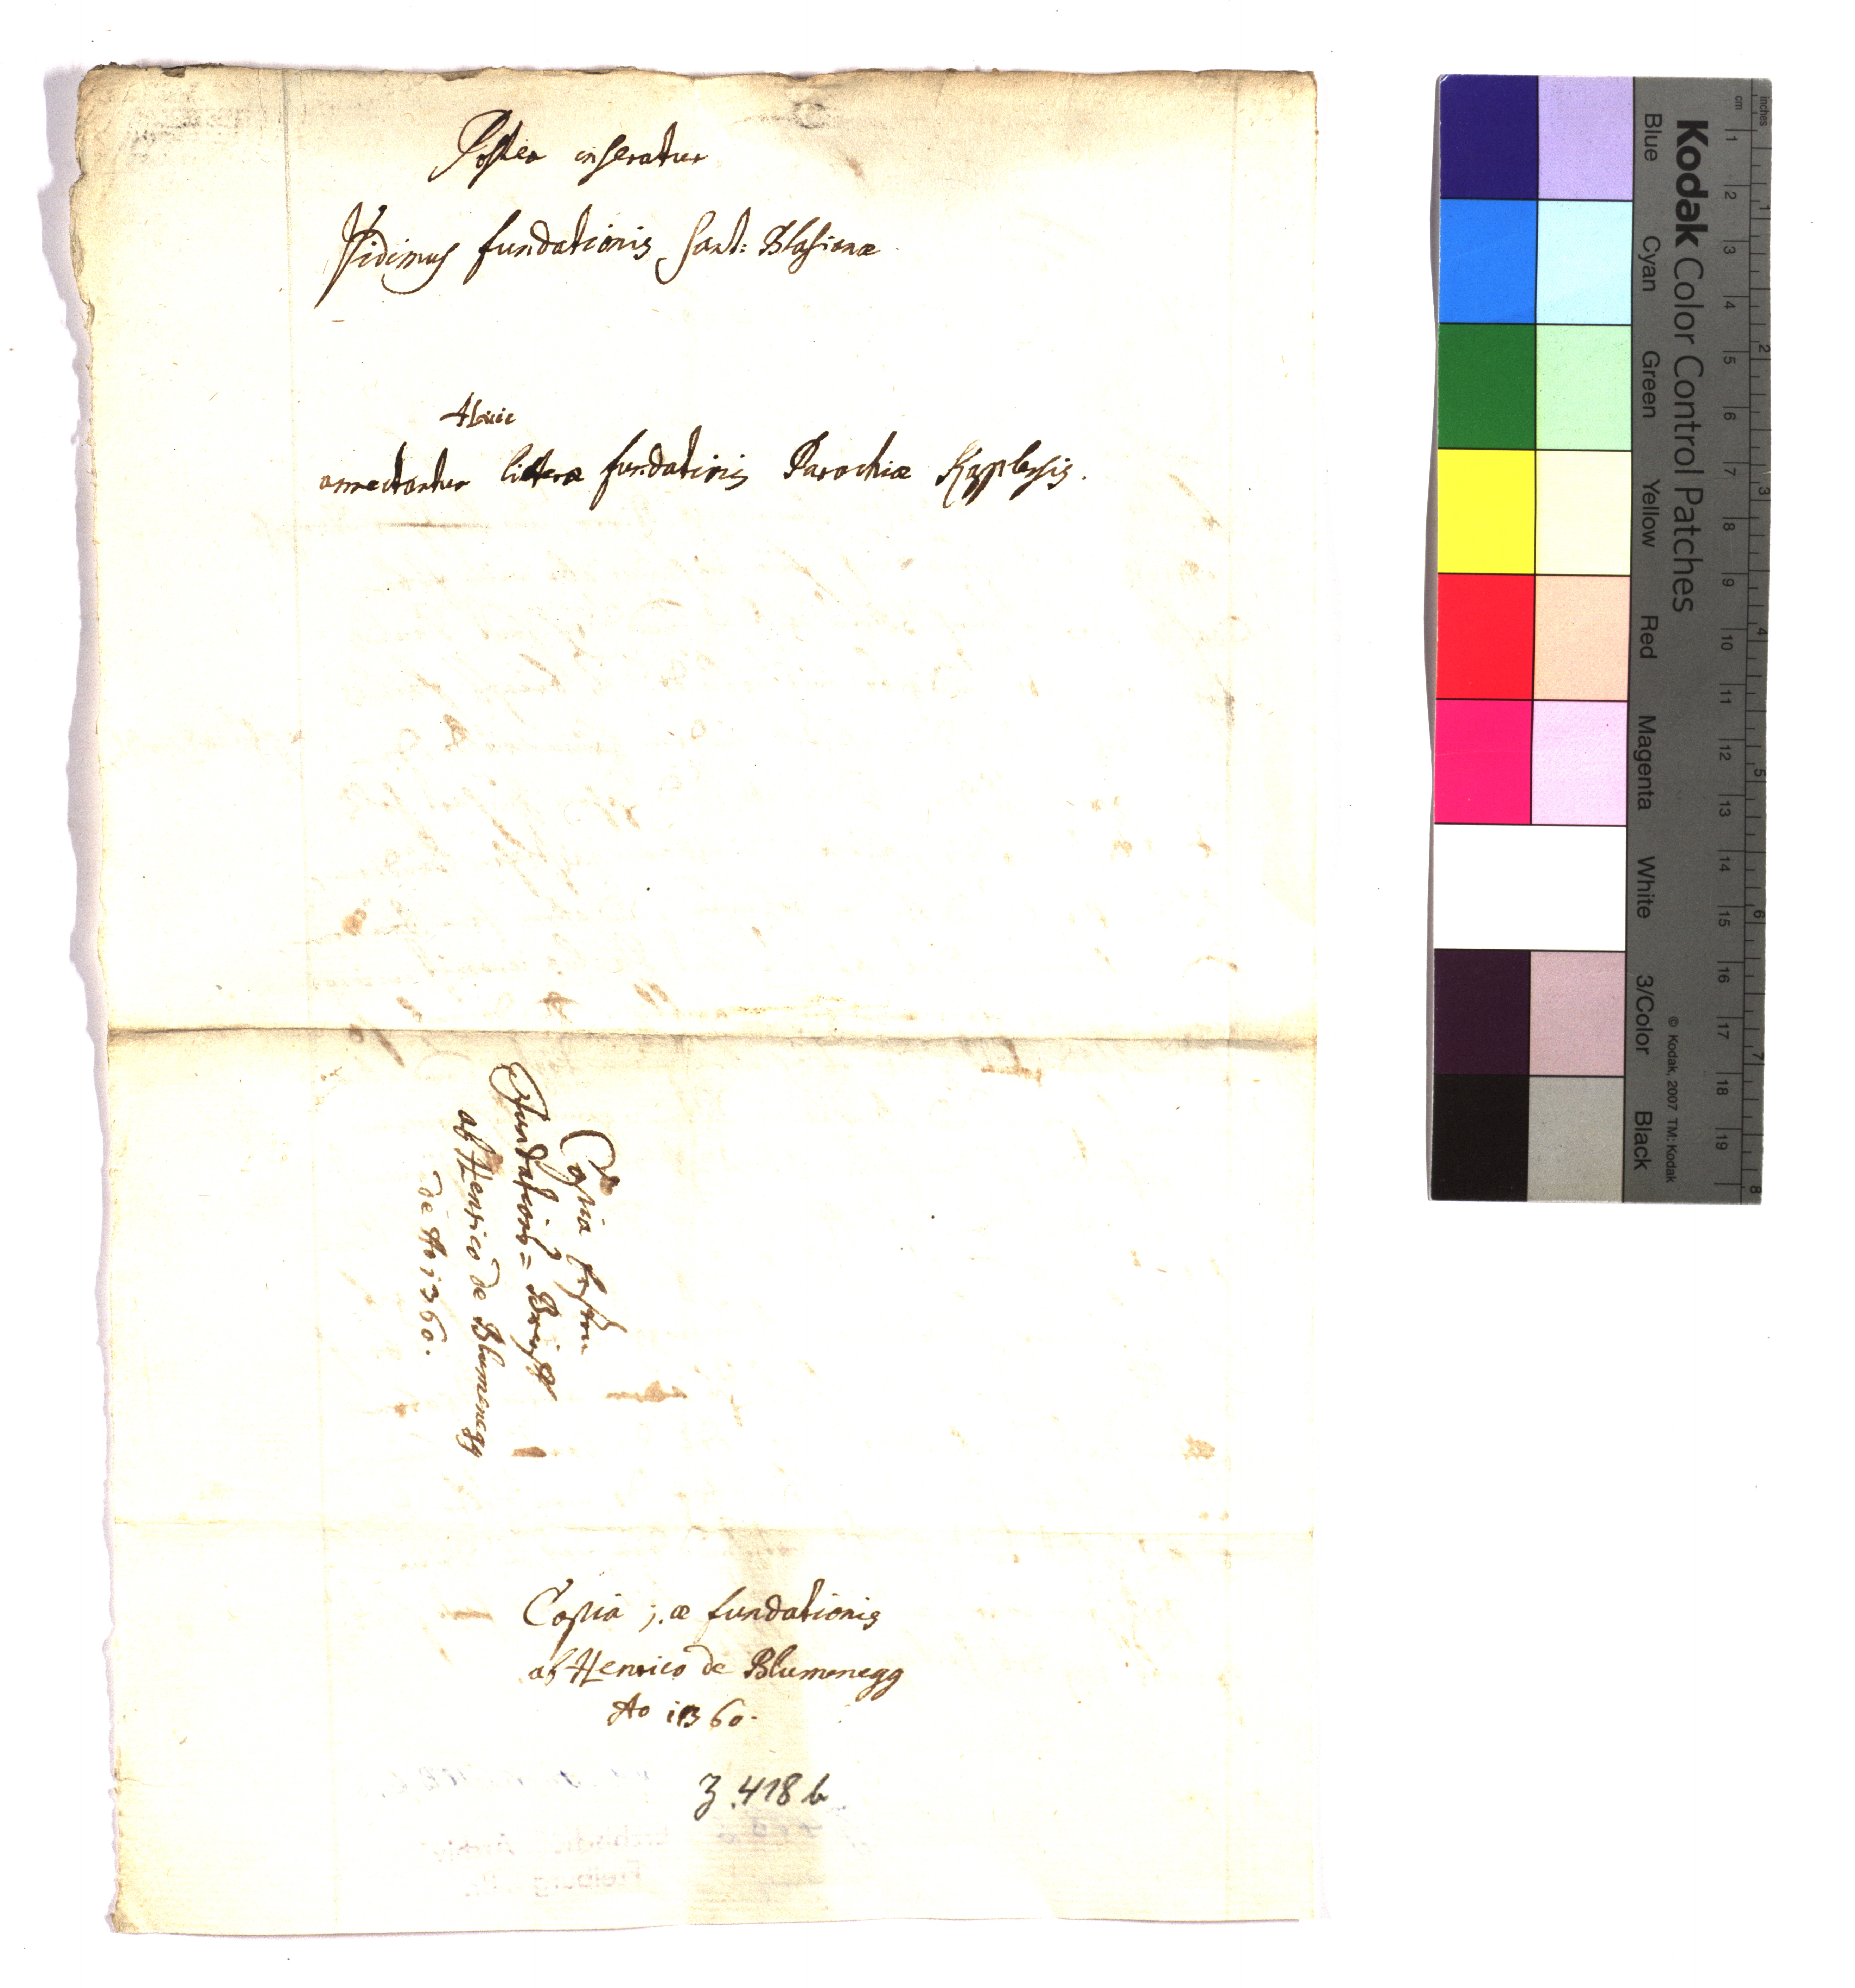 Postea inseratur
Vidimus fundationis Sant: Blasianæ
Huic
annectantur litteræ fundationis Parochiæ Kapplensis.
Copia
Fundations= Brieff
ab Henrico de Blumenegg
de Ao 1360.
Copia j.æ fundationis
ab Henrico de Blumenegg
Ao 1360.
Z. 418 b
Kodak Color Control Patches
Blue Cyan Green Yellow Red Magenta White 3/Color Black
© Kodak, 2007 TM: Kodak
inches 1 2 3 4 5 6 7 8
cm 1 2 3 4 5 6 7 8 9 10 11 12 13 14 15 16 17 18 19